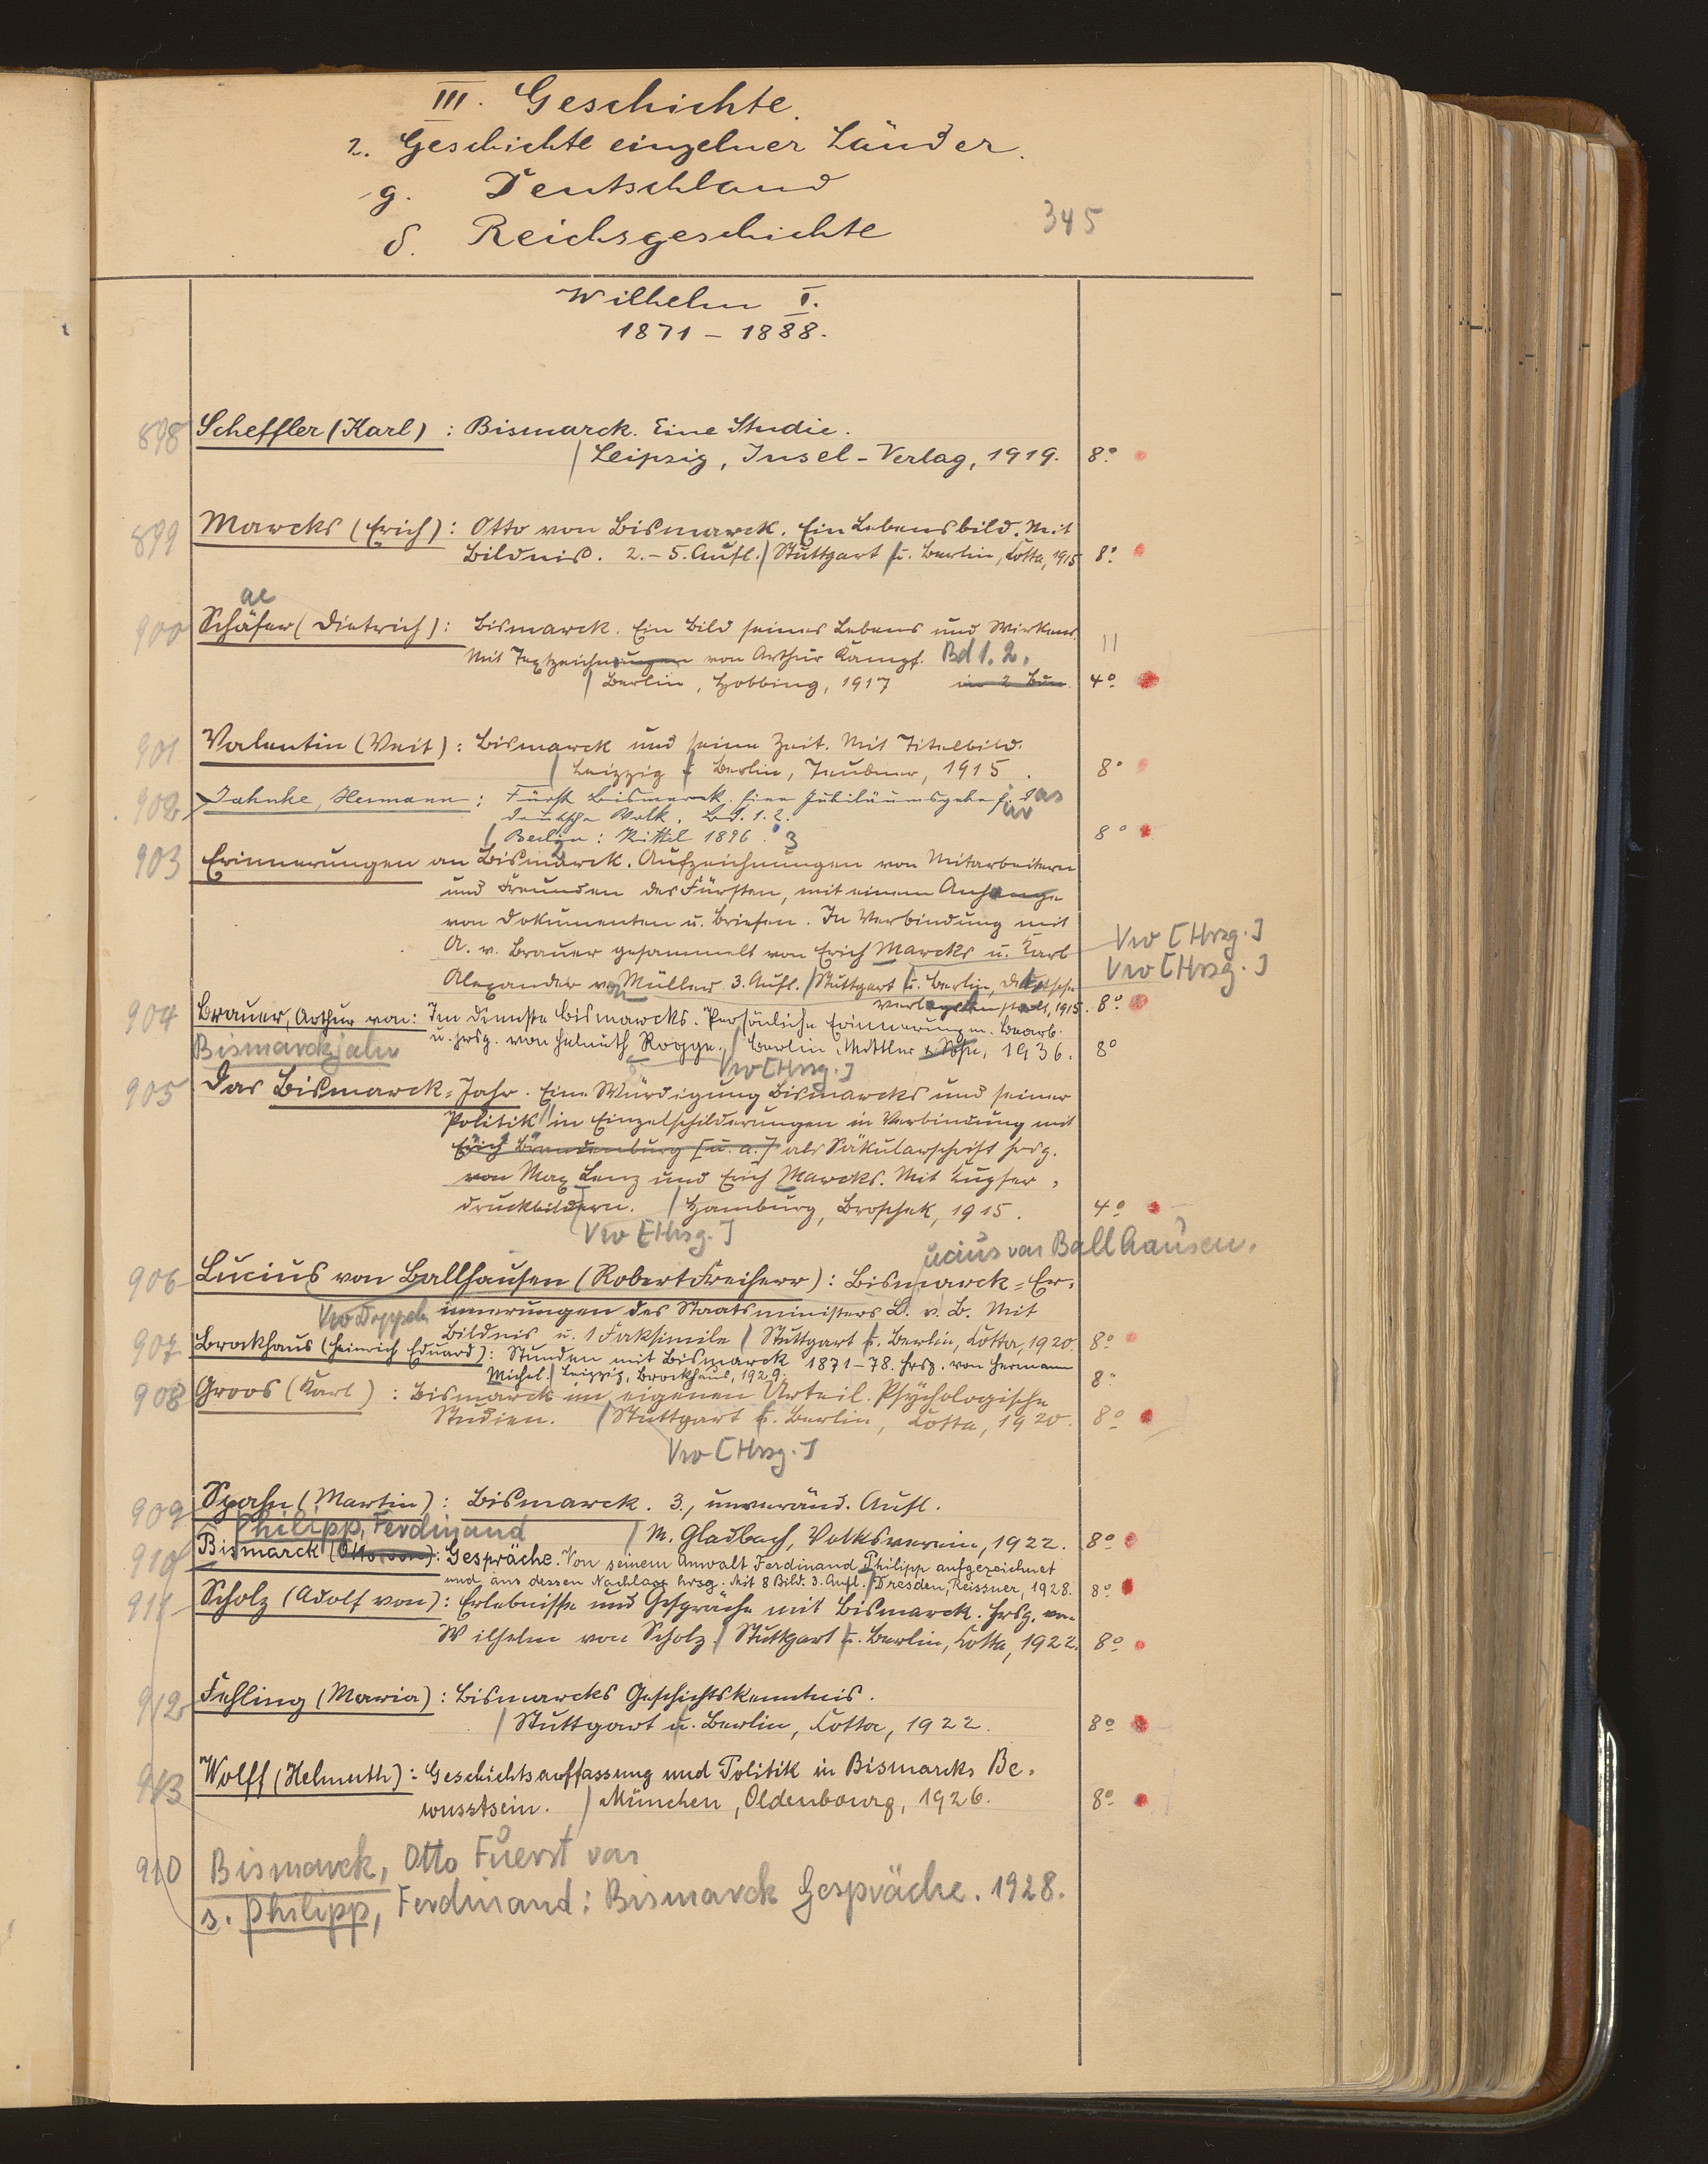 III. Geschichte.
2. Geschichte einzelner Länder.
g. Deutschland
δ. Reichsgeschichte
345
Wilhelm I.
1871 – 1888.
898 Scheffler (Karl) : Bismarck. Eine Studie.
/ Leipzig, Insel-Verlag, 1919. 8°
899 Marcks (Erich) : Otto von Bismarck. Ein Lebensbild. Mit
Bildnis. 2.–5. Aufl. / Stuttgart / u. Berlin, Cotta, 1915 8°
ae
900 Schäfer (Dietrich) : Bismarck. Ein Bild seines Lebens und Wirkens.
Mit Textzeichnungen von Arthur Kampf. Bd 1. 2. II
/ Berlin, Hobbing, 1917 in 2 Bdn. 4°
901 Valentin (Veit) : Bismarck und seine Zeit. Mit Titelbild.
/ Leipzig / Berlin, Teubner, 1915. 8°
902 Jahnke, Hermann : Fürst Bismarck. Eine Jubiläumsgabe f. das
deutsche Volk. Bd. 1. 2.
/ Berlin : Kittel 1896. 3 8°
903 Erinnerungen an Bismarck. Aufzeichnungen von Mitarbeitern
und Freunden des Fürsten, mit einem Anhange
von Dokumenten u. Briefen. In Verbindung mit
A. v. Brauer gesammelt von Erich Marcks u. Karl Vw [Hrsg.]
Alexander von Müller 3. Aufl. / Stuttgart / u. Berlin, Deutsche Vw [Hrsg.]
Verlagsanstalt, 1915. 8°
904 Brauer, Arthur von: Im Dienste Bismarcks. Persönliche Erinnerungen. Bearb.
u. hrsg. von Helmuth Rogge. / Berlin, Mittler & Sohn, 1936. 8°
Bismarckjahr
Vw [Hrsg.]
905 Das Bismarck-Jahr. Eine Würdigung Bismarcks und seiner
Politik / in Einzelschilderungen in Verbindung mit
Erich Brandenburg [u. a.] als Säkularschrift hrsg.
von Max Lenz und Erich Marcks. Mit Kupfer-
druckbildern. / Hamburg, Broschek, 1915. 4°
Vw [Hrsg.]
ucius von Ballhausen.
906 Lucius von Ballhausen (Robert Freiherr) : Bismarck-Er-
innerungen des Staatsministers L. v. B. Mit
Vw Doppeln
Bildnis u. 1 Faksimile / Stuttgart / u. Berlin, Cotta, 1920. 8°
907 Brockhaus (Heinrich Eduard) : Stunden mit Bismarck 1871–78. Hrsg. von Hermann
Michel. / Leipzig, Brockhaus, 1929. 8°
908 Groos (Karl) : Bismarck im eigenen Urteil. Psychologische
Studien. / Stuttgart / u. Berlin, Cotta, 1920. 8°
Vw [Hrsg.]
909 Spahn (Martin) : Bismarck. 3., unveränd. Aufl.
/ M. Gladbach, Volksverein, 1922. 8°
Philipp, Ferdinand
910 Bismarck (Otto von) : Gespräche. Von seinem Anwalt Ferdinand Philipp aufgezeichnet
und aus dessen Nachlass hrsg. Mit 8 Bild. 3. Aufl. / Dresden, Reissner, 1928. 8°
911 Scholz (Adolf von) : Erlebnisse und Gespräche mit Bismarck. Hrsg. von
Wilhelm von Scholz / Stuttgart / u. Berlin, Cotta, 1922. 8°
912 Fehling (Maria) : Bismarcks Geschichtskenntnis.
/ Stuttgart u. Berlin, Cotta, 1922. 8°
913 Wolff (Helmuth) : Geschichtsauffassung und Politik in Bismarcks Be-
wusstsein. / München, Oldenbourg, 1926. 8°
910 Bismarck, Otto Fuerst von
s. Philipp, Ferdinand : Bismarck Gespräche. 1928.